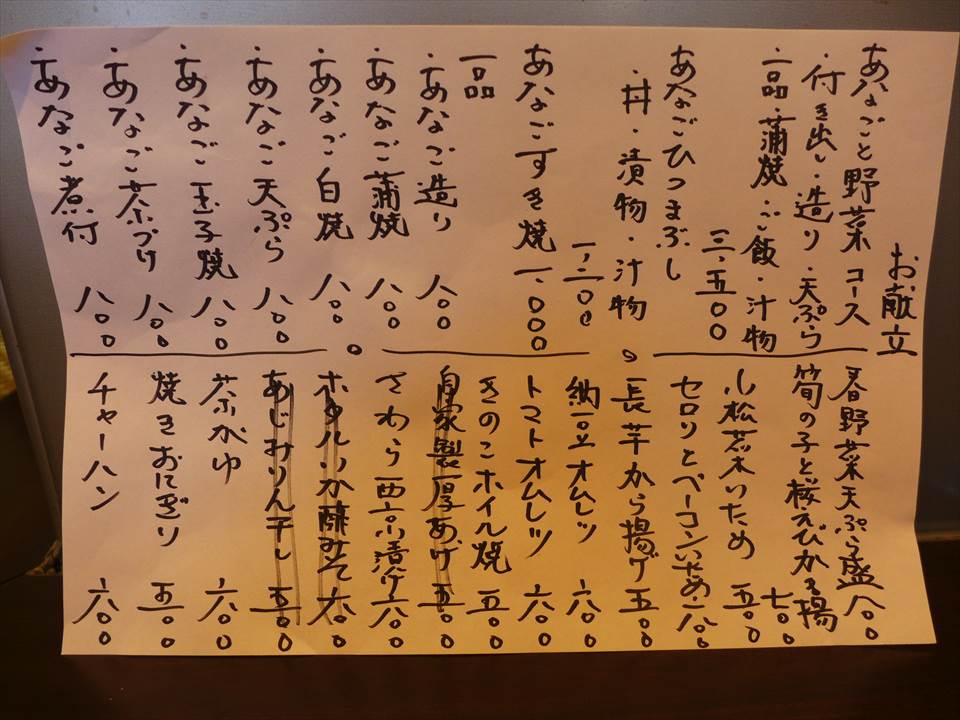 お献立
あなごと野菜コース
・付き出し・造り・天ぷら
一品・蒲焼・ご飯・汁物
三.五00
あなごひつまぶし
・丼・漬物・汁物
一.二00
あなごすき焼 一.000
一品
・あなご造り 八00
・あなご蒲焼 八00
・あなご白焼 八00
・あなご天ぷら 八00
・あなご玉子焼 八00
・あなご茶づけ 八00
・あなご煮付 八00
春野菜天ぷら盛 八00
筍の子と桜えびかき揚 七00
小松菜木いため 五00
セロリとベーコンいため 六00
長芋から揚げ 五00
納豆オムレツ 六00
トマトオムレツ 六00
きのこホイル焼 五00
自家製厚あげ 五00
さわら西京漬け 六00
ホタルいか酢みそ 六00
あじみりん干し 五00
茶がゆ 六00
焼きおにぎり 五00
チャーハン 六00